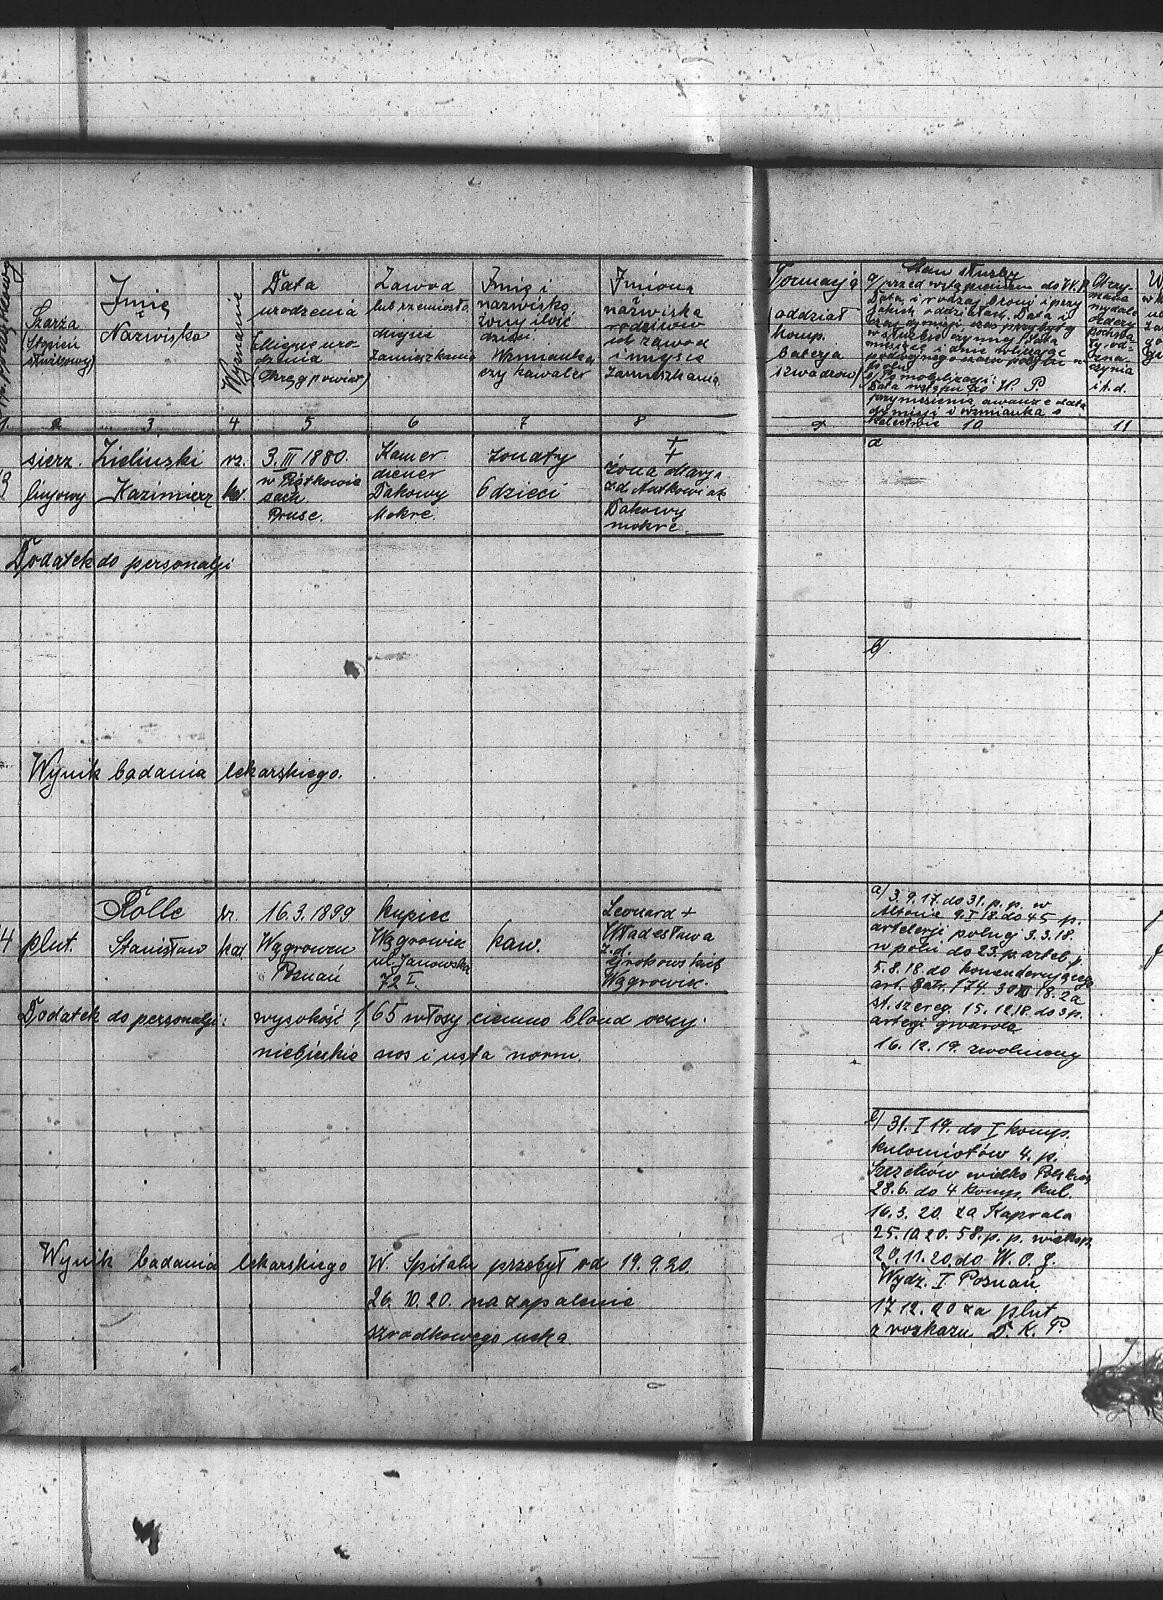 Szarża
(stopień
służbowy)
Imię
i
Nazwisko
Wyznanie
Data
urodzenia
(Miejsce uro-
dzenia
Okręg powiat)
Zawód
lub rzemiosło
miejsce
zamieszkania
Imię i
nazwisko
żony ilość
dzieci.
Wzmianka
czy kawaler
Imiona
i
nazwiska
rodziców
ich zawód
i miejsce
zamieszkania
Formacja
oddział
komp.
baterja
szwadron
Stan służby
a) przed wstąpieniem do W.P.
Data i rodzaj broni i przy
jakich oddziałach. Data i
w służbie czynnej
b) Po mobilizacji:
Data wstąpu do W. P.
przyniesienia, awanse data
dymisji i wzmianka o
Otrzy-
mane
ordery
i.t.d.
1 2 3 4 5 6 7 8 9 10 11
3
sierż.
liniowy
Zieliński
Kazimierz
rz.
kat.
3. III 1880.
w Piątkowie
Prusc.
Kamer
diener
Dakowy
Mokre.
żonaty
6 dzieci
+
+
żona Marja
z d. Ratkowiak
Dakowy
mokre.
a
Dodatek do personalji
b/.
Wynik badania lekarskiego.
4
plut.
Rólle
Stanisław
rz.
kat.
16.3.1899
Wągrowcu
Poznań
Kupiec
Wągrowiec
ul. Janowska
72 I.
kaw.
Leonard +
Władesława
z.d.
Grokowskich
Wągrowiec.
a) 3.9.17. do 31. p. p. w
Altonie 9.I 18. do 45 p.
artelerji polnej 3.3.18.
w polu do 23. p. artel. p.
5.8.18. do komenderującego
art. Batr. 174 30 III 18. za
st. szereg. 15.12.18. do 3 p.
artegi gwarda
16.12.19. zwolniony
Dodatek do personalji: wysokość 1,65 włosy ciemno bląd oczy.
niebieskie nos i usta norm.
b/ 31. I 19. do I komp.
kulomiotów 4. p.
Strzelców wielko Polskich
28.6. do 4 komp. kul.
16.3. 20. za Kaprala
25.10.20. 58. p. p. wielkop.
20.11.20. do W. O. G.
Wydz. I Poznań
17 12. 20 za plut
z rozkazu D. K. P.
Wynik badania lekarskiego W. Szpitalu przebył od 19.9.20.
26. 10. 20. na zapalenie
szrodkowego ucha